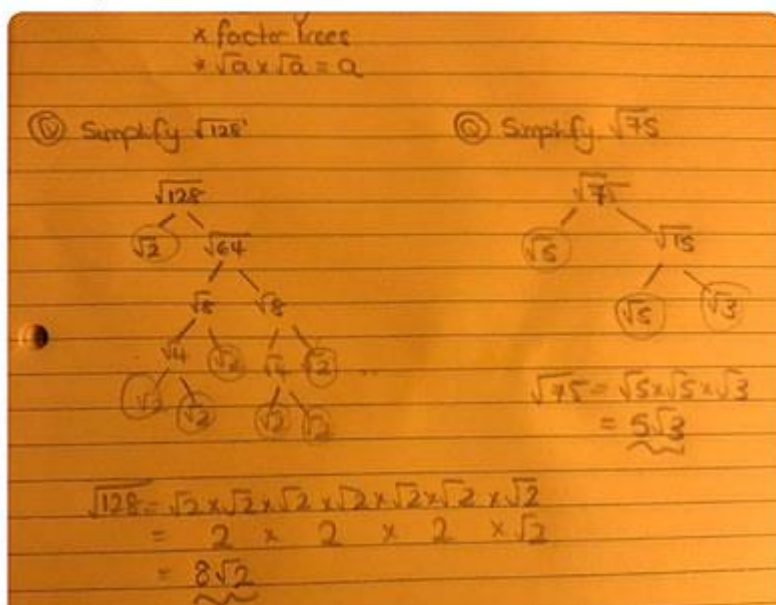 * factor trees
* √a x √a = a
Q Simplify √128
√128
√2 √64
√8 √8
√4 √2 √4 √2 ..
√2 √2 √2 √2
√128 = √2 x √2 x √2 x √2 x √2 x √2 x √2
= 2 x 2 x 2 x √2
= 8√2
Q Simplify √75
√75
√5 √15
√5 √3
√75 = √5 x √5 x √3
= 5√3